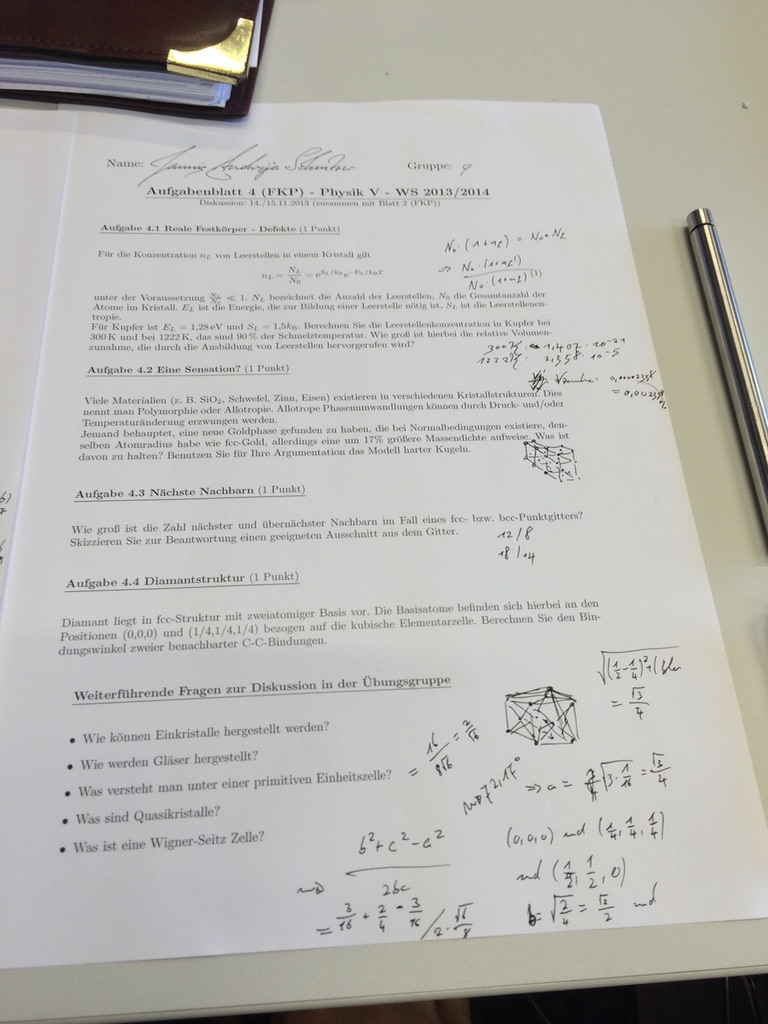 Name: Gruppe: 9
Aufgabenblatt 4 (FKP) - Physik V - WS 2013/2014
Diskussion: 14./15.11.2013 (zusammen mit Blatt 2 (FKP))
Aufgabe 4.1 Reale Festkörper - Defekte (1 Punkt)
N₀·(1+n_L) = N₀+N_L
Für die Konzentration n_L von Leerstellen in einem Kristall gilt
n_L = N_L/N₀ = e^{S_L/k_B} e^{-E_L/k_B T}
⇒ N₀·(1+n_L')/N₀·(1+n_L)
unter der Voraussetzung N_L/N₀ ≪ 1. N_L bezeichnet die Anzahl der Leerstellen, N₀ die Gesamtanzahl der
Atome im Kristall. E_L ist die Energie, die zur Bildung einer Leerstelle nötig ist, S_L ist die Leerstellenen-
tropie.
Für Kupfer ist E_L = 1,28 eV und S_L = 1,5k_B. Berechnen Sie die Leerstellenkonzentration in Kupfer bei
300 K und bei 1222 K, das sind 90 % der Schmelztemperatur. Wie groß ist hierbei die relative Volumen-
zunahme, die durch die Ausbildung von Leerstellen hervorgerufen wird?
300K: 1,407 · 10⁻²¹
1222K: 2,358 · 10⁻⁵
0,00002358
= 0,002358
%
Aufgabe 4.2 Eine Sensation? (1 Punkt)
Viele Materialien (z. B. SiO₂, Schwefel, Zinn, Eisen) existieren in verschiedenen Kristallstrukturen. Dies
nennt man Polymorphie oder Allotropie. Allotrope Phasenumwandlungen können durch Druck- und/oder
Temperaturänderung erzwungen werden.
Jemand behauptet, eine neue Goldphase gefunden zu haben, die bei Normalbedingungen existiere, den-
selben Atomradius habe wie fcc-Gold, allerdings eine um 17% größere Massendichte aufweise. Was ist
davon zu halten? Benutzen Sie für Ihre Argumentation das Modell harter Kugeln.
Aufgabe 4.3 Nächste Nachbarn (1 Punkt)
Wie groß ist die Zahl nächster und übernächster Nachbarn im Fall eines fcc- bzw. bcc-Punktgitters?
Skizzieren Sie zur Beantwortung einen geeigneten Ausschnitt aus dem Gitter.
12/8
18/14
Aufgabe 4.4 Diamantstruktur (1 Punkt)
Diamant liegt in fcc-Struktur mit zweiatomiger Basis vor. Die Basisatome befinden sich hierbei an den
Positionen (0,0,0) und (1/4,1/4,1/4) bezogen auf die kubische Elementarzelle. Berechnen Sie den Bin-
dungswinkel zweier benachbarter C-C-Bindungen.
√(1/2-1/4)²+(bla
= √3/4
Weiterführende Fragen zur Diskussion in der Übungsgruppe
• Wie können Einkristalle hergestellt werden?
• Wie werden Gläser hergestellt?
• Was versteht man unter einer primitiven Einheitszelle?
• Was sind Quasikristalle?
• Was ist eine Wigner-Seitz Zelle?
= 16/8√6 = 2/√6
⇒ a = √3·1/16 = √3/4
(0,0,0) und (1/4, 1/4, 1/4)
und (1/2, 1/2, 0)
b = √2/4 = √2/2 und
b²+c²-a²
2bc
= 3/16 + 2/4 - 3/16 / 2·√6/8